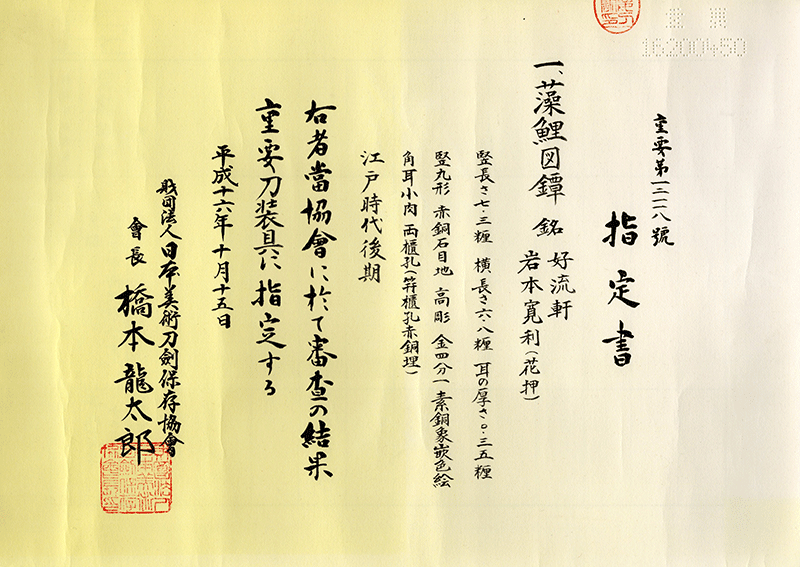 重要第一三一八號
指定書
一、藻鯉図鐔 銘 好流軒
岩本寛利(花押)
竪長さ七・三糎 横長さ六・八糎 耳の厚さ〇・三五糎
竪丸形 赤銅石目地 高彫 金四分一素銅象嵌色絵
角耳小肉 両櫃孔(笄櫃孔赤銅埋)
江戸時代後期
右者當協會に於て審査の結果
重要刀装具に指定する
平成十六年十月十五日
財団法人日本美術刀劍保存協會
會長 橋本龍太郎
16200450